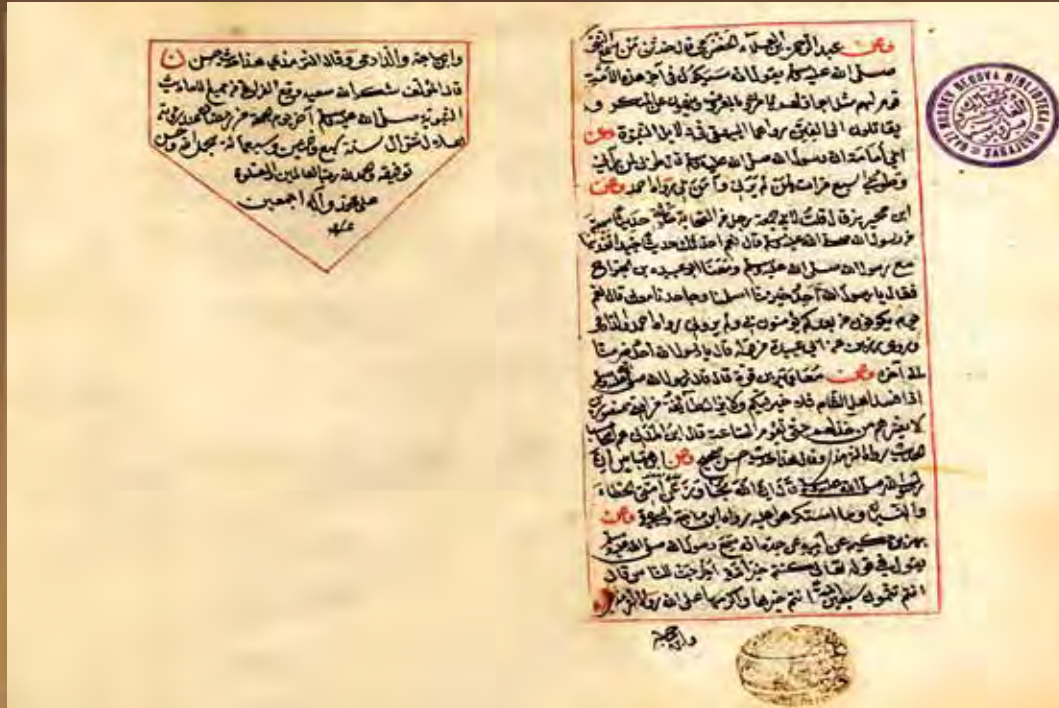 وعن عبد الرحمن بن العلاء الحضرمي قال حدثني من سمع النبي
صلى الله عليه وسلم يقول انه سيكون في آخر هذه الأمة
قوم لهم مثل اجر اولهم يأمرون بالمعروف وينهون عن المنكر و
يقاتلون اهل الفتن رواهما البيهقي في دلايل النبوة وعن
ابي أمامة ان رسول الله صلى الله عليه وسلم قال طوبى لمن رآني
وطوبى سبع مرات لمن لم يرني وآمن بي رواه احمد وعن
ابن محيريز قال قلت لابي جمعة رجل من الصحابة حدثنا حديثا سمعته
من رسول الله صلى الله عليه وسلم قال نعم احدثك حديثا جيدا تغدينا
مع رسول الله صلى الله عليه وسلم ومعنا ابو عبيدة بن الجراح
فقال يا رسول الله أحد خير منا اسلمنا وجاهدنا معك قال نعم
قوم يكونون من بعدكم يؤمنون بي ولم يروني رواه احمد والدارمي
وروى رزين عن ابي عبيدة من قوله قال يا رسول الله أحد خير منا
الى آخره وعن معاوية بن قرة قال قال رسول الله صلى الله عليه وسلم
اذا فسد اهل الشام فلا خير فيكم ولا يزال طائفة من امتي منصورين
لا يضرهم من خذلهم حتى تقوم الساعة قال ابن المديني هم اصحاب
الحديث رواه الترمذي وقال هذا حديث حسن صحيح وعن ابن عباس ان
رسول الله صلى الله عليه وسلم قال ان الله تجاوز عن امتي الخطاء
والنسيان وما استكرهوا عليه رواه ابن ماجة والبيهقي وعن
بهز بن حكيم عن ابيه عن جده انه سمع رسول الله صلى الله عليه وسلم
يقول في قوله تعالى كنتم خير أمة اخرجت للناس قال
انتم تتمون سبعين أمة انتم خيرها واكرمها على الله رواه الترمذي
وابن ماجة
وابن ماجة والدارمي وقال الترمذي هذا حديث حسن
قال المؤلف شكر الله سعيه وقع الفراغ من جميع الاحاديث
النبوية صلى الله عليه وسلم آخر يوم الجمعة من رمضان عند رؤية
هلال شوال سنة سبع وثلثين وسبعمائة بحمد الله وحسن
توفيقه والحمد لله رب العالمين والصلوة
على محمد وآله اجمعين
GAZI HUSREV BEGOVA BIBLIOTEKA U SARAJEVU